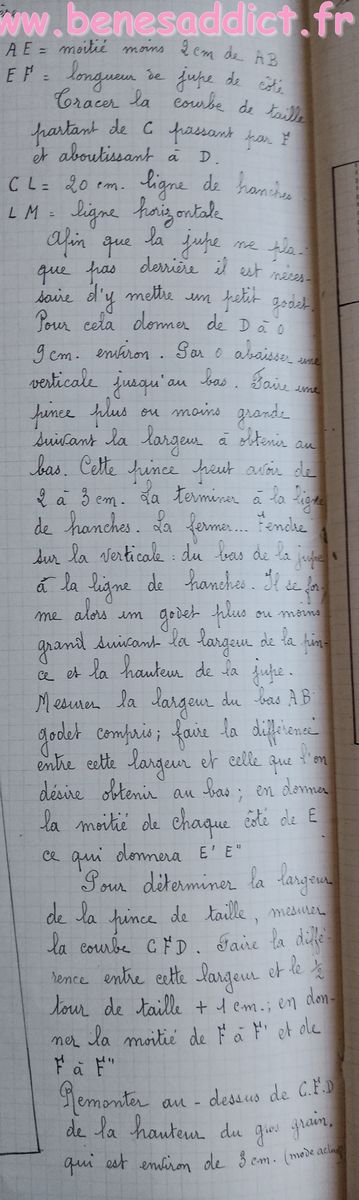 www.benesaddict.fr
AE = moitié moins 2cm de AB
EF = longueur de jupe de côté
Tracer la courbe de taille
partant de C passant par F
et aboutissant à D.
CL = 20 cm. ligne de hanches
LM = ligne horizontale
Afin que la jupe ne pla-
que pas derrière il est néces-
saire d'y mettre un petit godet.
Pour cela donner de D à O
9cm. environ. Par O abaisser une
verticale jusqu'au bas. Faire une
pince plus ou moins grande
suivant la largeur à obtenir au
bas. Cette pince peut avoir de
2 à 3cm. La terminer à la ligne
de hanches. La fermer... Fendre
sur la verticale : du bas de la jupe
à la ligne de hanches. Il se for-
me alors un godet plus ou moins
grand suivant la largeur de la pin-
ce et la hauteur de la jupe.
Mesurer la largeur du bas AB
godet compris; faire la différence
entre cette largeur et celle que l'on
désire obtenir au bas; en donner
la moitié de chaque côté de E
ce qui donnera E' E"
Pour déterminer la largeur
de la pince de taille, mesurer
la courbe CFD. Faire la diffé-
rence entre cette largeur et le ½
tour de taille + 1 cm.; en don-
ner la moitié de F à F' et de
F à F"
Remonter au-dessus de C.F.D
de la hauteur du gros grain,
qui est environ de 3cm. (mode